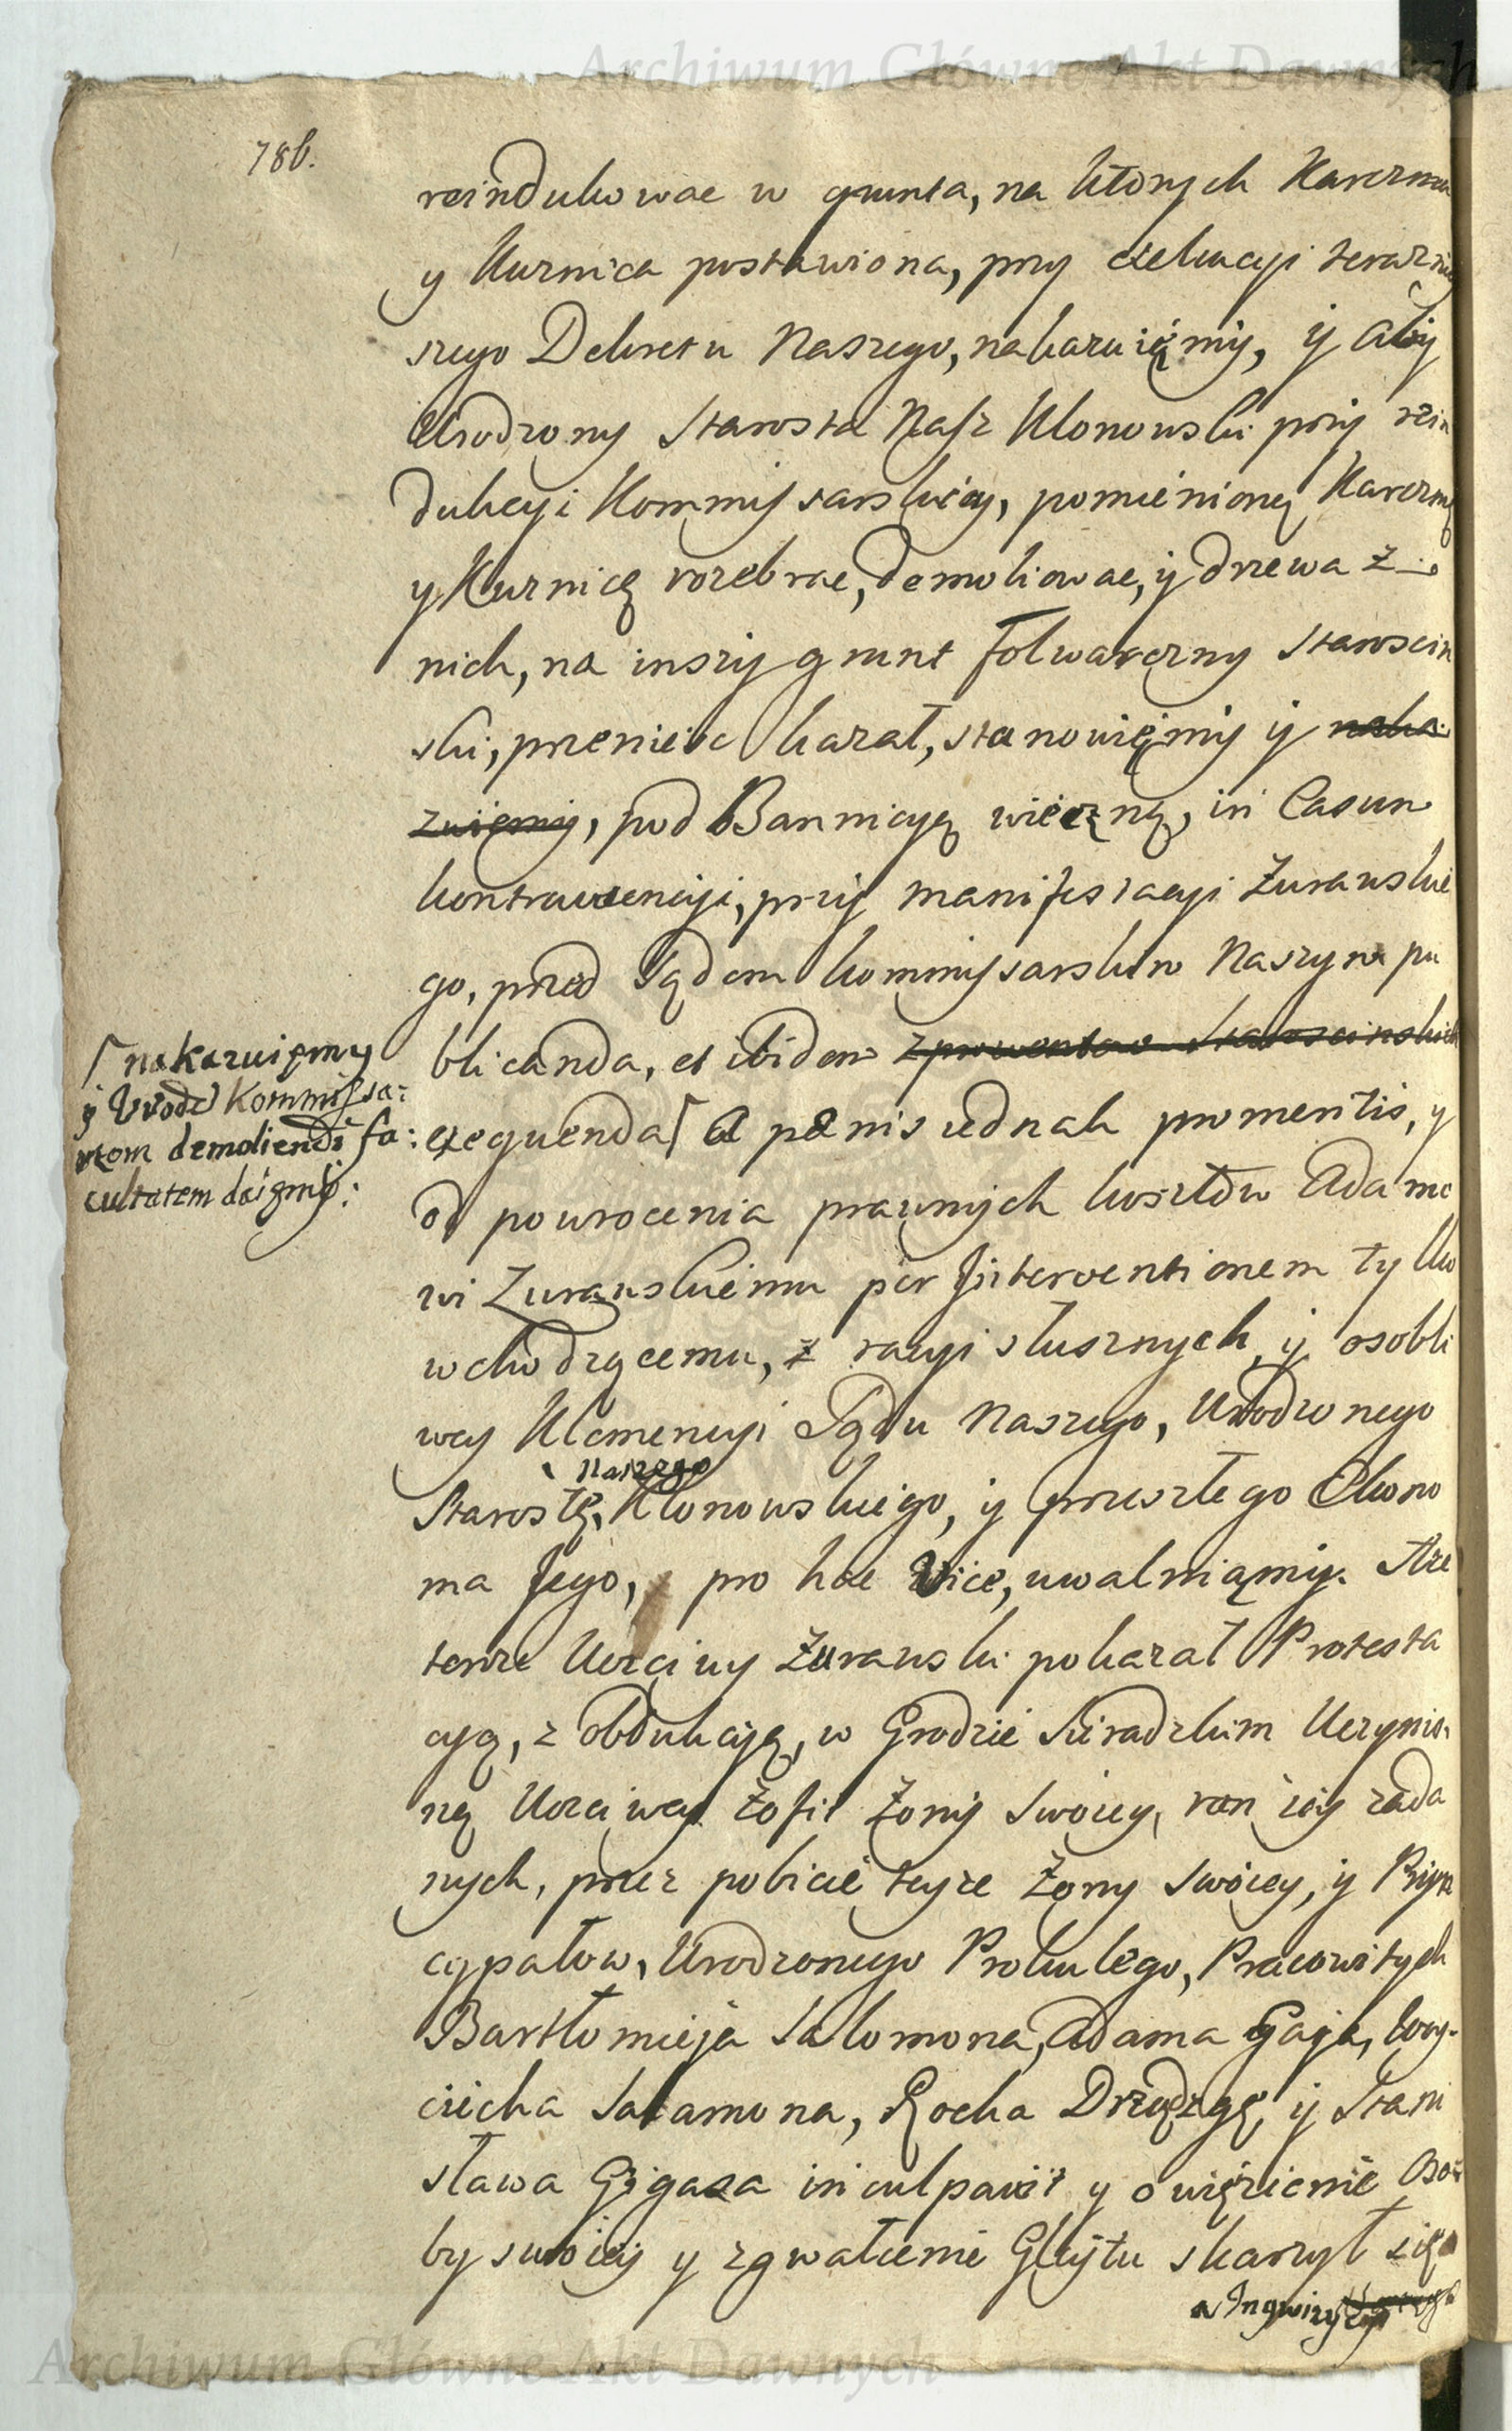 Archiwum Główne Akt Dawnych
78b.
reindukowac w grunta, na ktorych Karczma
y Kurnica postawiona, przy exekucyi teraznie
szego Dekretu Naszego, nakazuięmÿ, ÿ abÿ
Urodzony Starosta Nasz Klonowski przÿ rein
dukcyi Kommissarskiey, pomienioną Karczmę
y Kurnicę rozebrac, demoliowac, ÿ drzewa z
nich, na inszÿ grunt folwarczny Staroscin
ski, przeniesc kazał, stanowięmÿ ÿ naka
zuięmÿ, pod Bannicyą wieczną, in Casum
kontrawencÿi, przÿ manifestacyi Zurawskie
go, przed Sądem kommissarskim Naszym pu
blicanda, et ibidem z prowentow Staroscinskich
exequenda ⌈ A pænis iednak promeritis, y
od powrocenia prawnÿch kosztow Adamo
wi Zurawskiemu per Interventionem tylko
wchodzącemu, z racyi słusznych, ÿ osobli
wey Klemencyi Sądu Naszego, Urodzonego
Naszego
Starostę Klonowskiego, ÿ przeszłego Ekono
ma Jego, pro hac Vice, uwalniamÿ. Ize
tenze Uczciwy Zurawski pokazał Protesta
cyą, z obdukcÿą, w Grodzie Sieradzkim Uczynio
ną Uczciwey Zofii Zonÿ Swoiey, ran iey zada
nych, przez pobicie teyze Zony Swoiey, ÿ Prÿn
cypałow, Urodzonego Prokulego, Pracowitych
Bartłomieja Salomona, Adama Gaja, Woy-
ciecha Salamona, Rocha Drządzgę, ÿ Stani
sława Gigasa inculpavit y o więzienie Oso
by swoiey y zgwałcenie Gleÿtu skarzył się
a Inqwizycyi
⌈ nakazuięmy
ÿ Urodz Kommissa:
rzom demoliendi fa:
cultatem daięmÿ:
Archiwum Główne Akt Dawnych